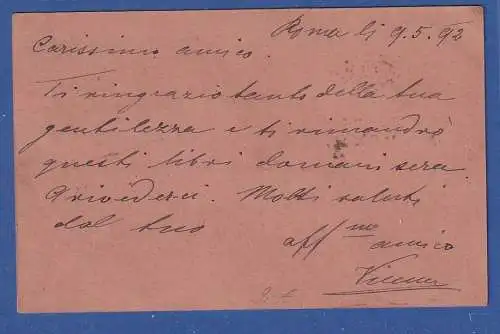 Roma li 9.5.92
Carissimo amico.
Ti ringrazio tanto della tua
gentilezza e ti rimandrò
questi libri domani sera.
Arivederci. Molti saluti
dal tuo
aff mo amico